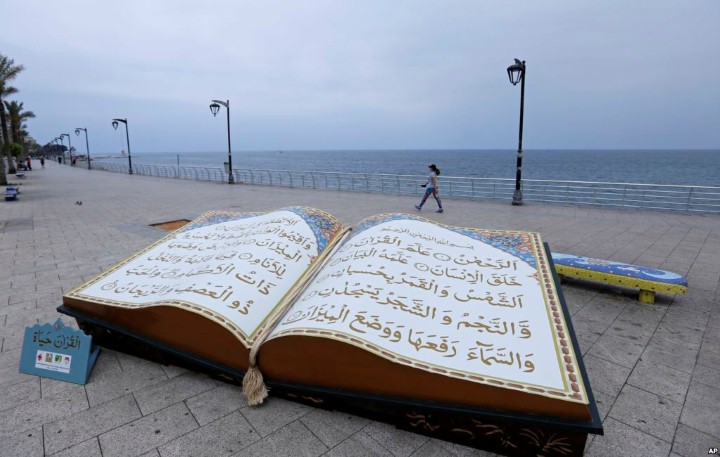 بسم الله الرحمن الرحيم
الرَّحْمَٰنُ عَلَّمَ الْقُرْآنَ
خَلَقَ الْإِنسَانَ عَلَّمَهُ الْبَيَانَ
الشَّمْسُ وَالْقَمَرُ بِحُسْبَانٍ
وَالنَّجْمُ وَالشَّجَرُ يَسْجُدَانِ
وَالسَّمَاءَ رَفَعَهَا وَوَضَعَ الْمِيزَانَ
وَأَقِيمُوا
الْمِيزَانَ
لِلْأَنَامِ فِيهَا فَاكِهَةٌ وَالنَّخْلُ
ذَاتُ الْأَكْمَامِ وَالْحَبُّ
ذُو الْعَصْفِ وَالرَّيْحَانُ
القُرْآن حَيَاة
AP